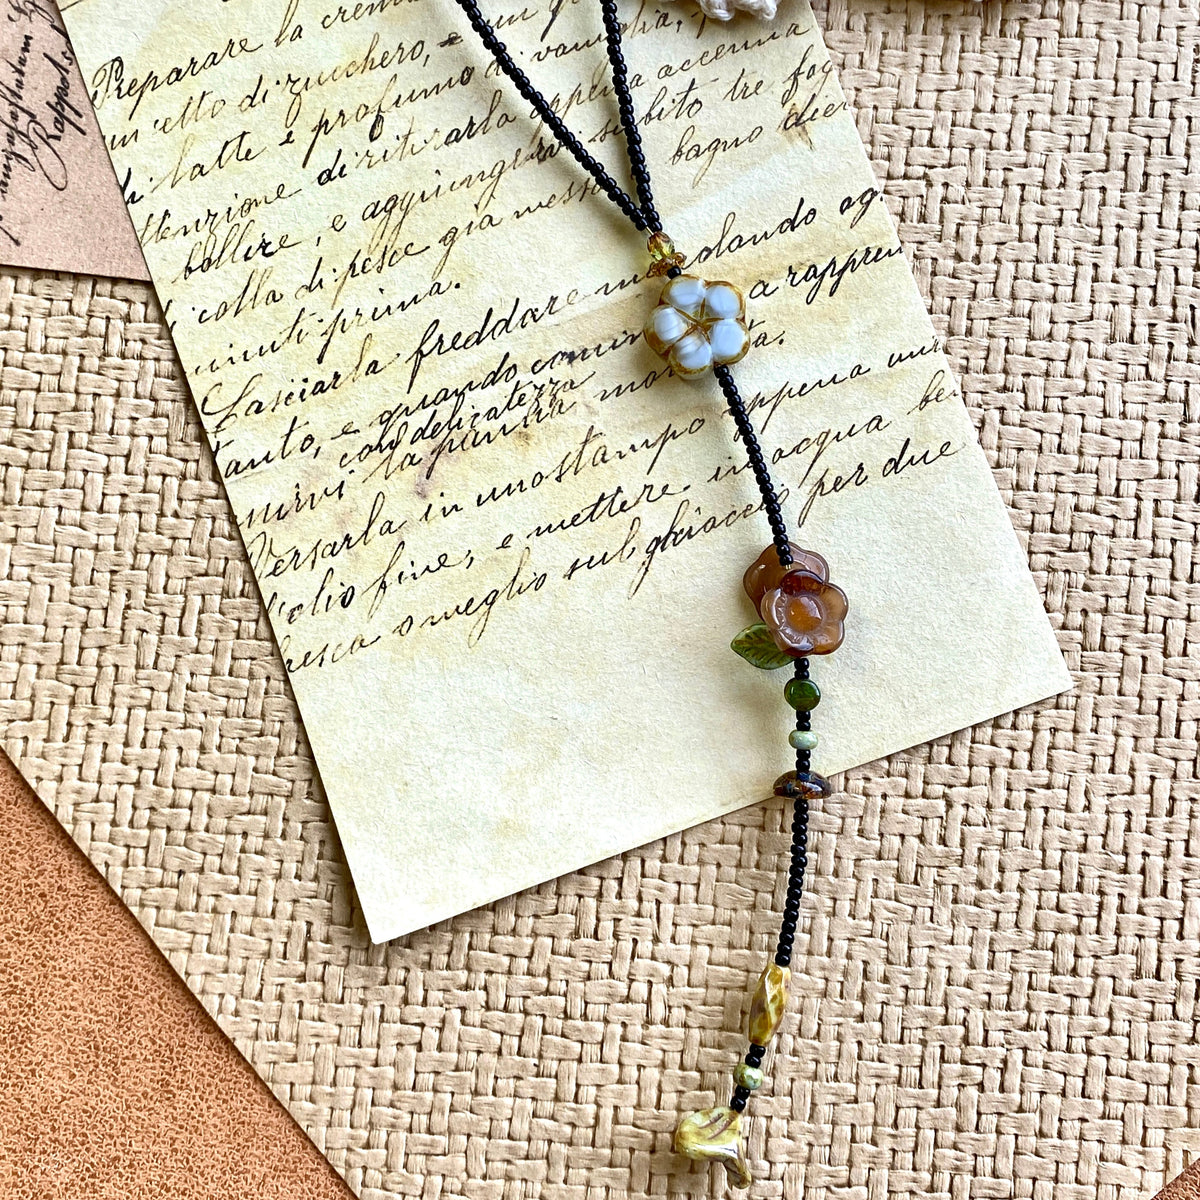 Preparare la crema
un etto di zucchero, e un
di latte e profumo di vaniglia,
ttenzione di ritirarla appena accenna
bollire, e aggiungervi subito tre fog
i colla di pesce già messa bagno die
minuti prima.
Lasciarla freddare mescolando og
tanto, e quando comin a a rappren
con delicatezza
unirvi la panna montata.
Versarla in uno stampo appena un
d'olio fine, e mettere in acqua be
fresca o meglio sul ghiaccio per due
Rappo